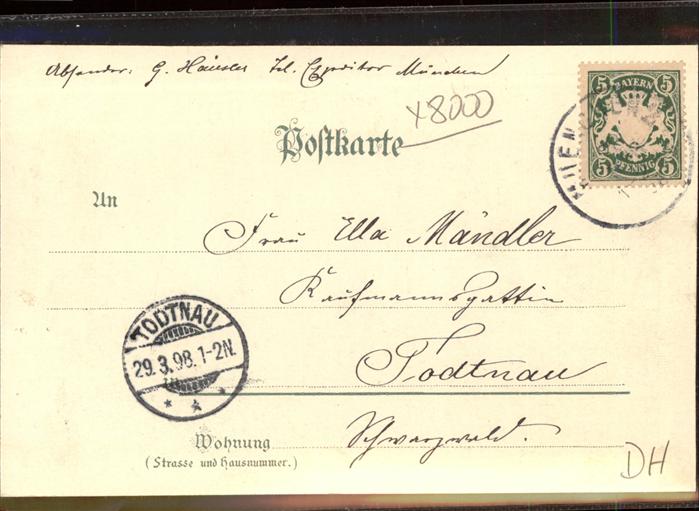 Absender: G. Häusler Tel. Expeditor München
x8000
5 BAYERN 5
5 PFENNIG 5
Postkarte
An
Frau Ella Mändler
Kaufmannsgattin
TODTNAU
29.3.98.1-2N.
Todtnau
Wohnung
Schwarzwald.
(Strasse und Hausnummer.)
DH